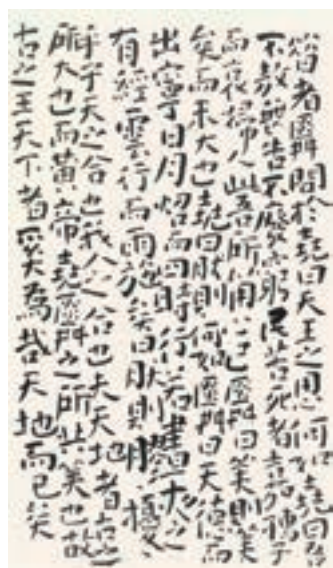 昔者舜問於堯曰天王之用心何如堯曰吾
不敖無告不廢窮民苦死者嘉孺子
而哀婦人此吾所以用心已舜曰美則美
矣而未大也堯曰然則何如舜曰天德而
出寧日月照而四時行若晝夜之
有經雲行而雨施矣曰然則擾
乎子天之合也我人之合也夫天地者古之
所大也而黃帝堯舜之所共美也故
古之王天下者奚為哉天地而已矣